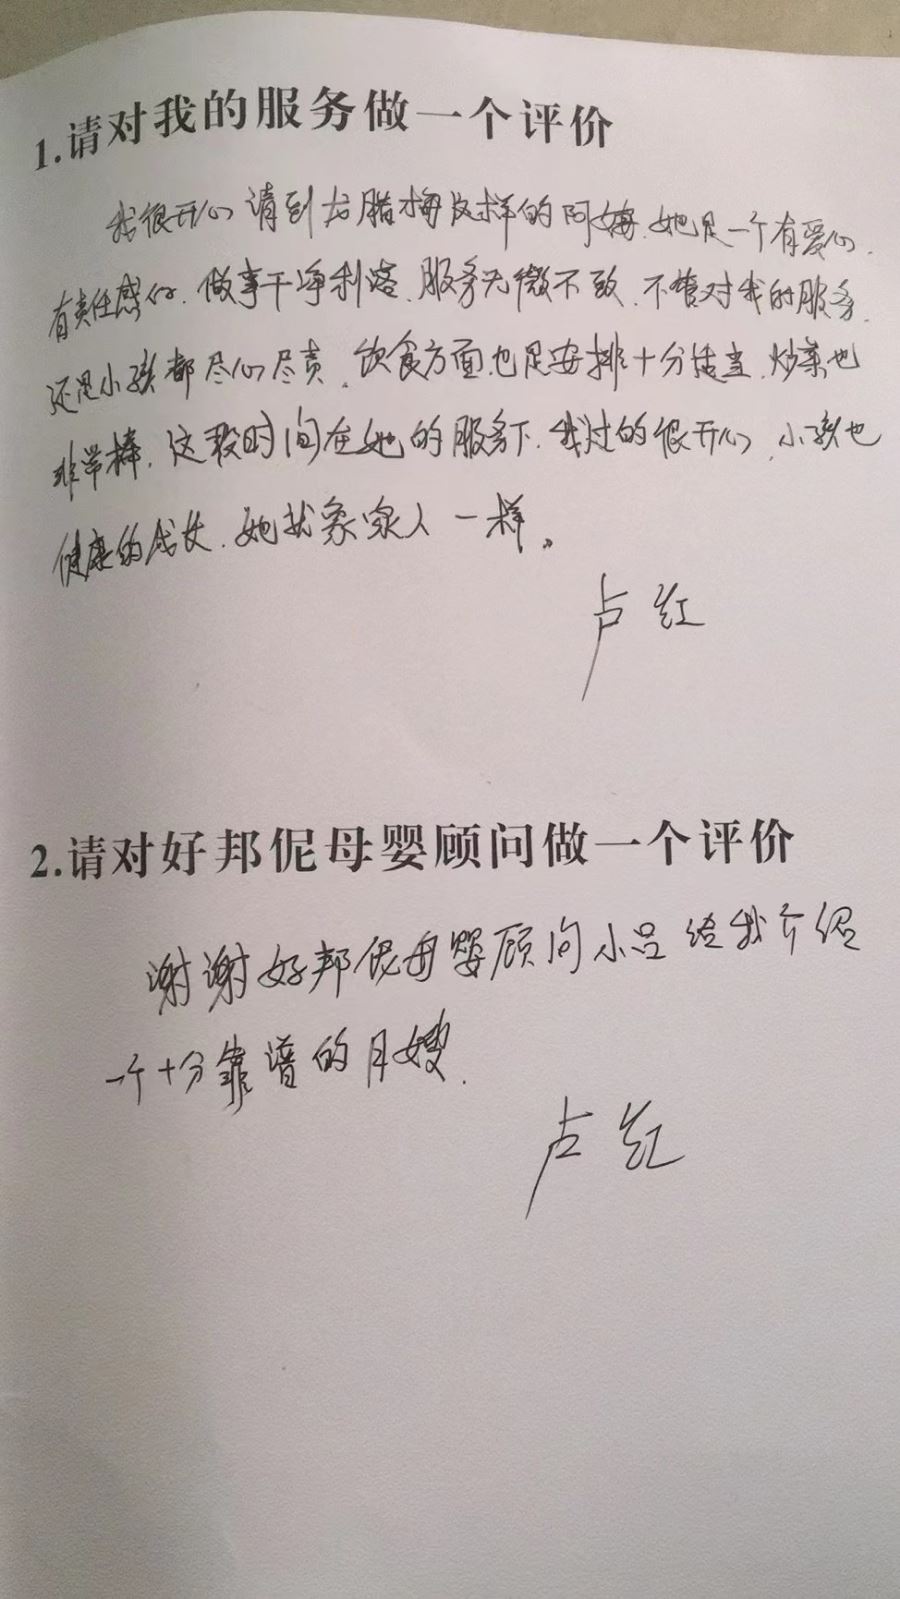 1.请对我的服务做一个评价
我很开心请到龙腊梅这样的阿姨.她是一个有爱心.
有责任感的.做事干净利落.服务无微不致.不管对我的服务.
还是小孩都尽心尽责.饮食方面也是安排十分恰当.炒菜也
非常棒.这段时间在她的服务下.我过的很开心.小孩也
健康的成长.她就象家人一样。
卢红
2.请对好邦伲母婴顾问做一个评价
谢谢好邦伲母婴顾问小吕给我介绍
一个十分靠谱的月嫂.
卢红